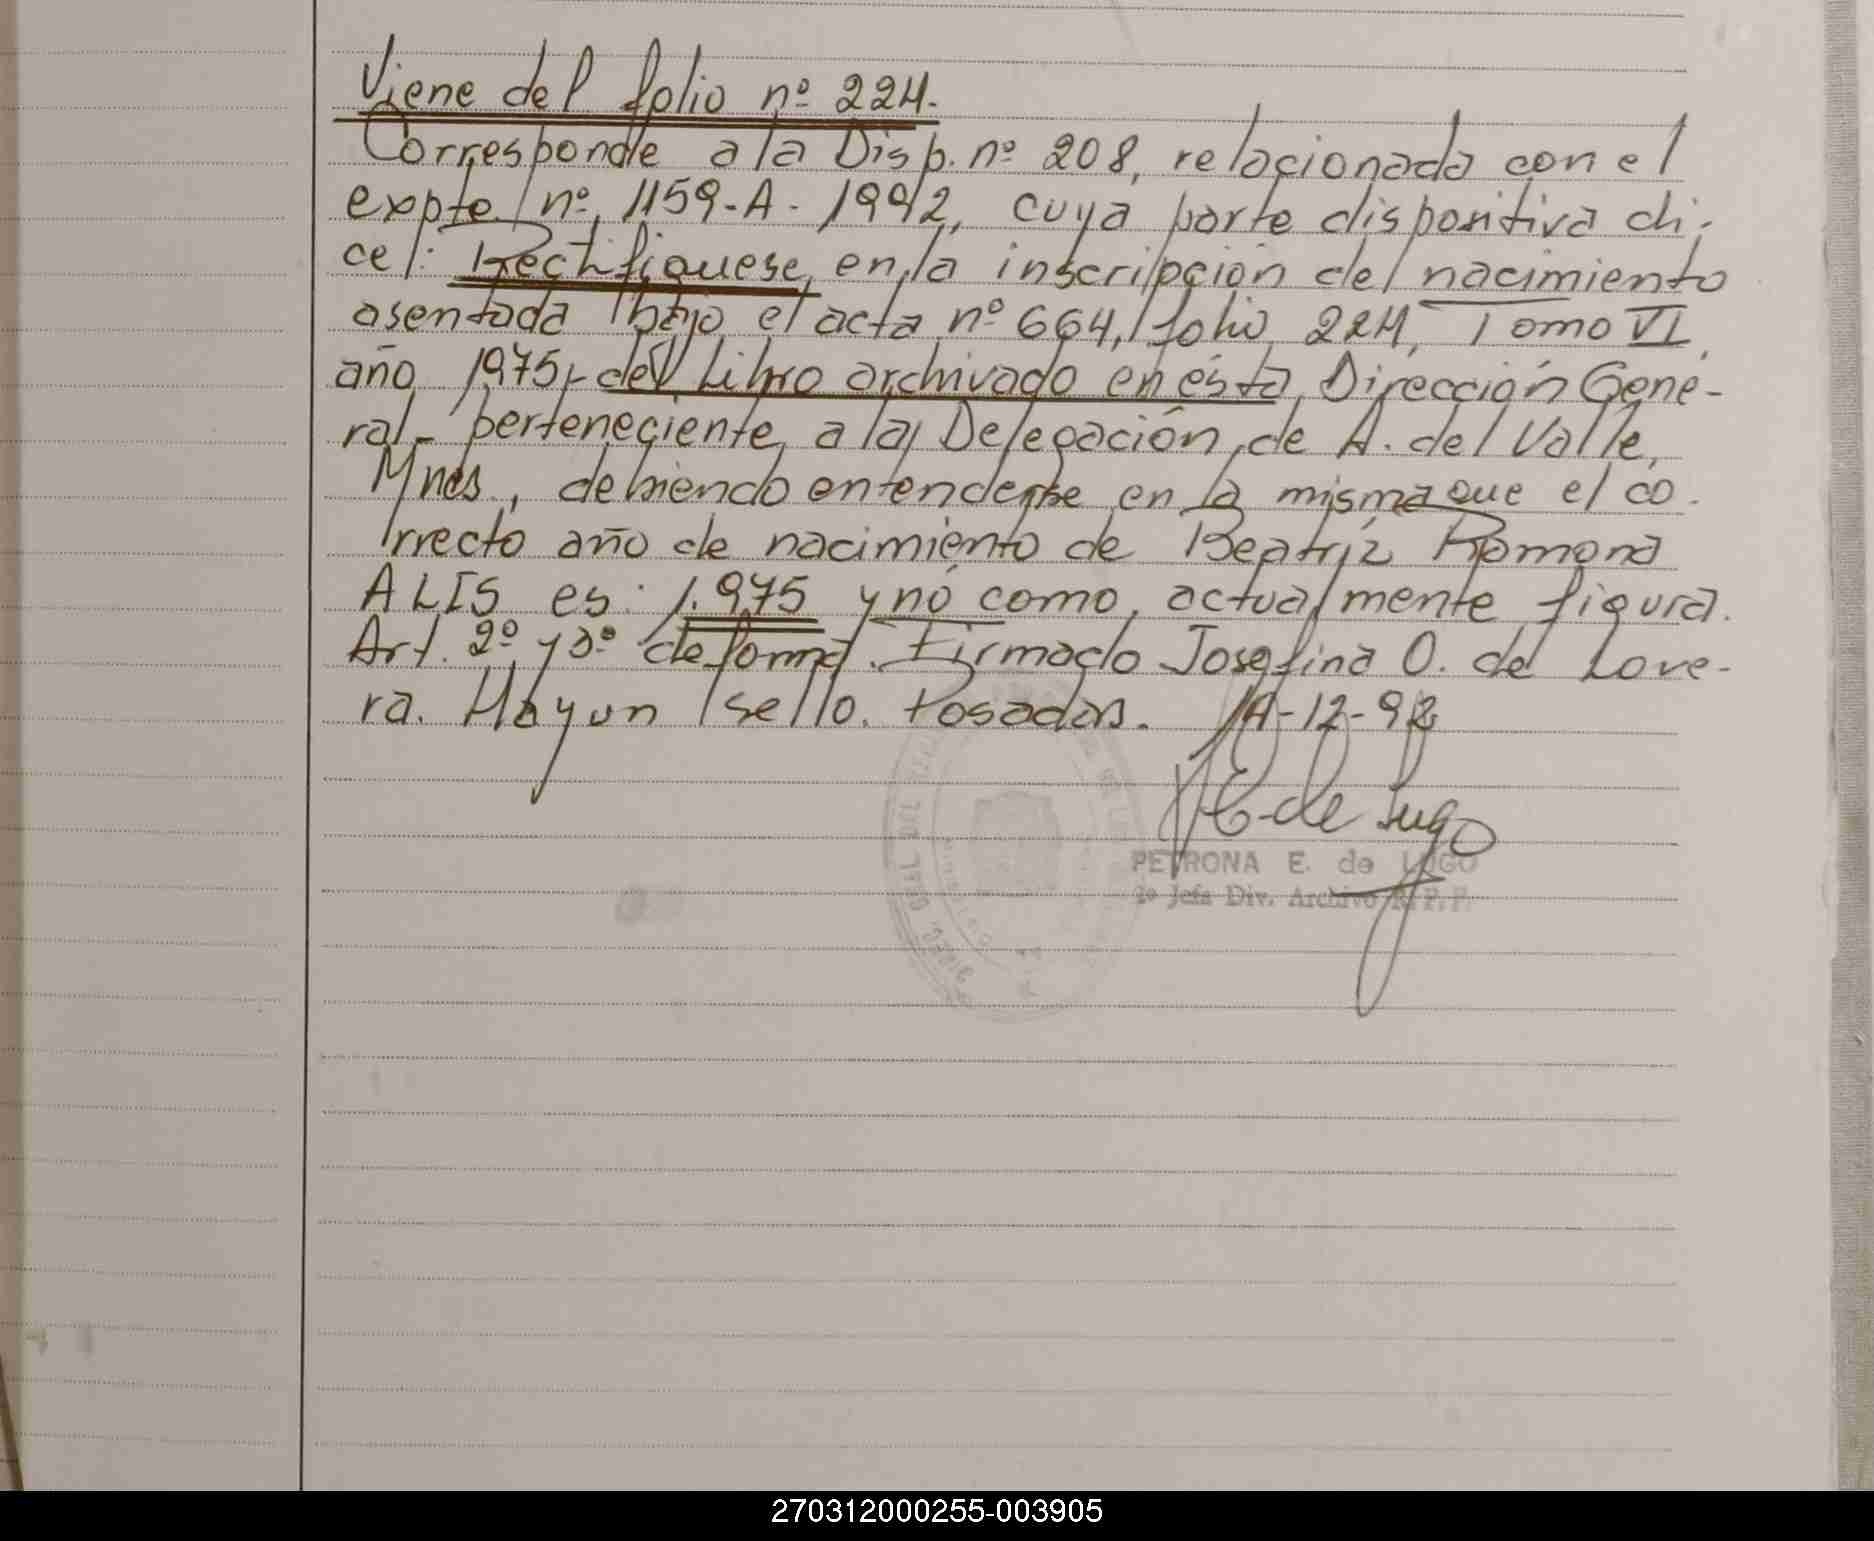 Viene del folio nº 224.
Corresponde a la Disp. nº 208, relacionada con el
expte nº 1159-A-1992, cuya parte dispositiva di-
ce: Rectifiquese en la inscripción del nacimiento
asentada bajo el acta nº 664, folio 224, Tomo VI,
año 1975, del Libro archivado en ésta Dirección Gene-
ral- perteneciente a la Delegación de A. del Valle,
Mnes, debiendo entenderse en la misma que el co-
rrecto año de nacimiento de Beatriz Ramona
ALIS es: 1.975 y no como actualmente figura.
Art. 2º y 3º de forma. Firmado Josefina O. de Love-
ra. Hay un sello. Posadas. -12-92
E. de Lugo
PETRONA E. de LUGO
2º Jefa Div. Archivo R.P.P.
270312000255-003905